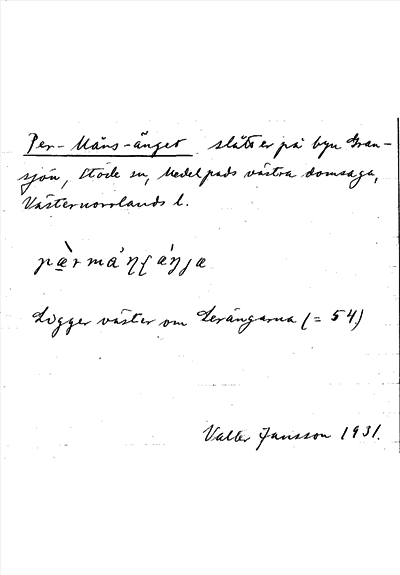 Per-Måns-änget slåtter på byn Gran-
sjön, Stöde sn, Medelpads västra domsaga,
Västernorrlands l.
Ligger väster om Lerängarna (= 54)
Valter Jansson 1931.